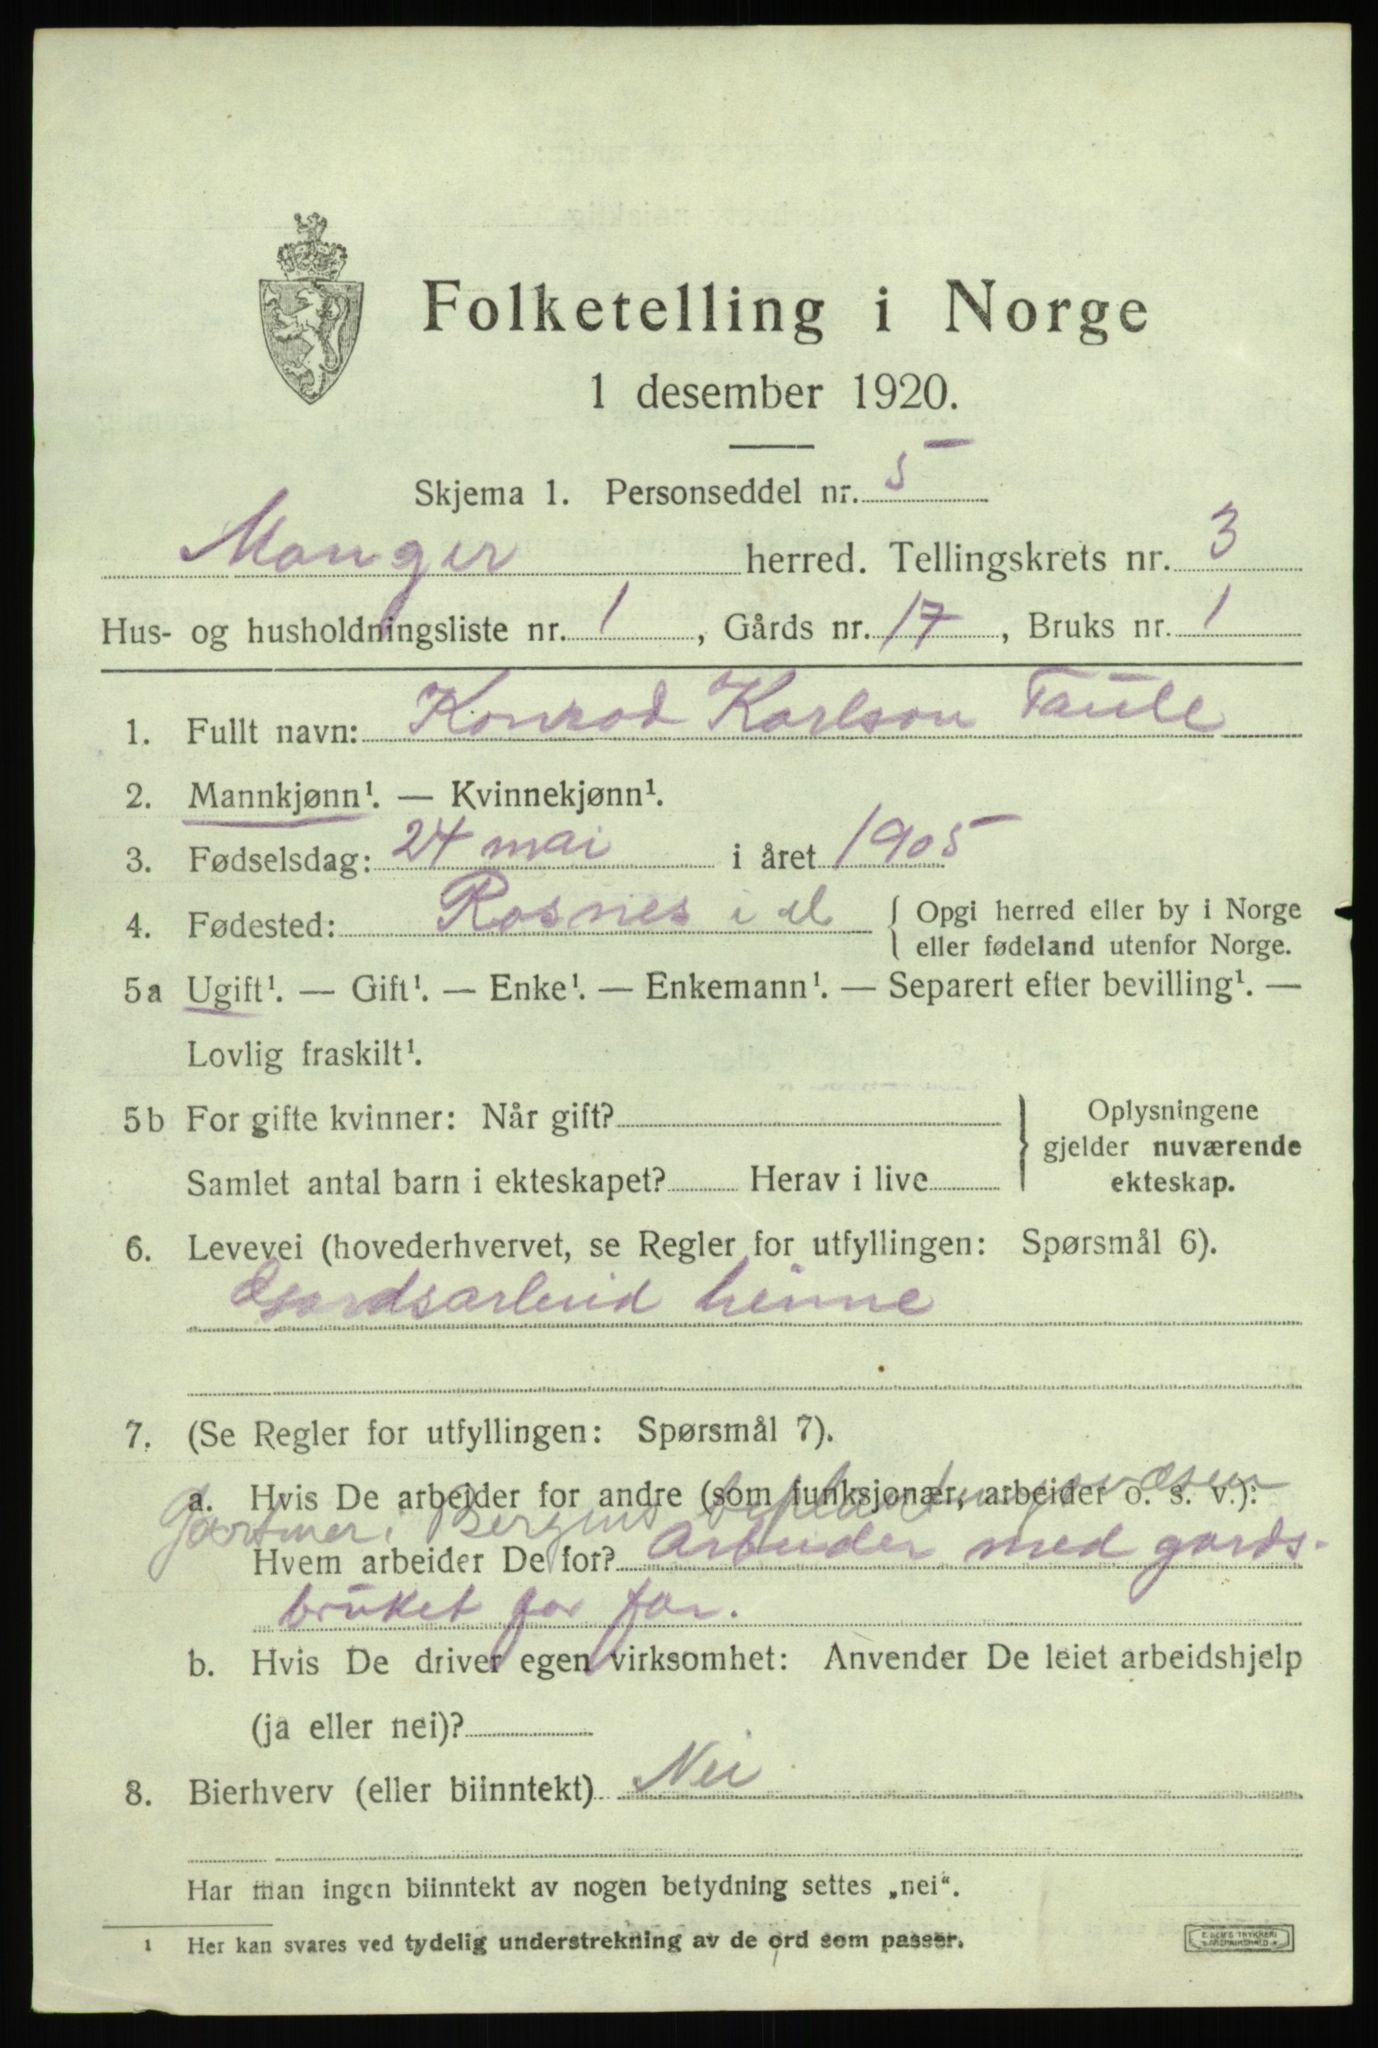 Folketelling i Norge
1 desember 1920.
Skjema 1. Personseddel nr. 5
Manger herred. Tellingskrets nr. 3
Hus- og husholdningsliste nr. 1, Gårds nr. 17, Bruks nr. 1
1. Fullt navn: Konrad Karlson Taule
2. Mannkjønn¹. — Kvinnekjønn¹.
3. Fødselsdag: 24 mai i året 1905
4. Fødested: Rosnes i d { Opgi herred eller by i Norge
eller fødeland utenfor Norge.
5a Ugift¹. — Gift¹. — Enke¹. — Enkemann¹. — Separert efter bevilling¹. —
Lovlig fraskilt¹.
5b For gifte kvinner: Når gift? } Oplysningene
gjelder nuværende
Samlet antal barn i ekteskapet? Herav i live ekteskap.
6. Levevei (hovederhvervet, se Regler for utfyllingen: Spørsmål 6).
Gardsarbeid heime
7. (Se Regler for utfyllingen: Spørsmål 7).
a. Hvis De arbeider for andre (som funksjonær, arbeider o. s. v.):
Gartner i Bergens beplantningsvæsen
Hvem arbeider De for? Arbeider med gards-
bruket for far.
b. Hvis De driver egen virksomhet: Anvender De leiet arbeidshjelp
(ja eller nei)?
8. Bierhverv (eller biinntekt) Nei
Har man ingen biinntekt av nogen betydning settes „nei“.
¹ Her kan svares ved tydelig understrekning av de ord som passer.